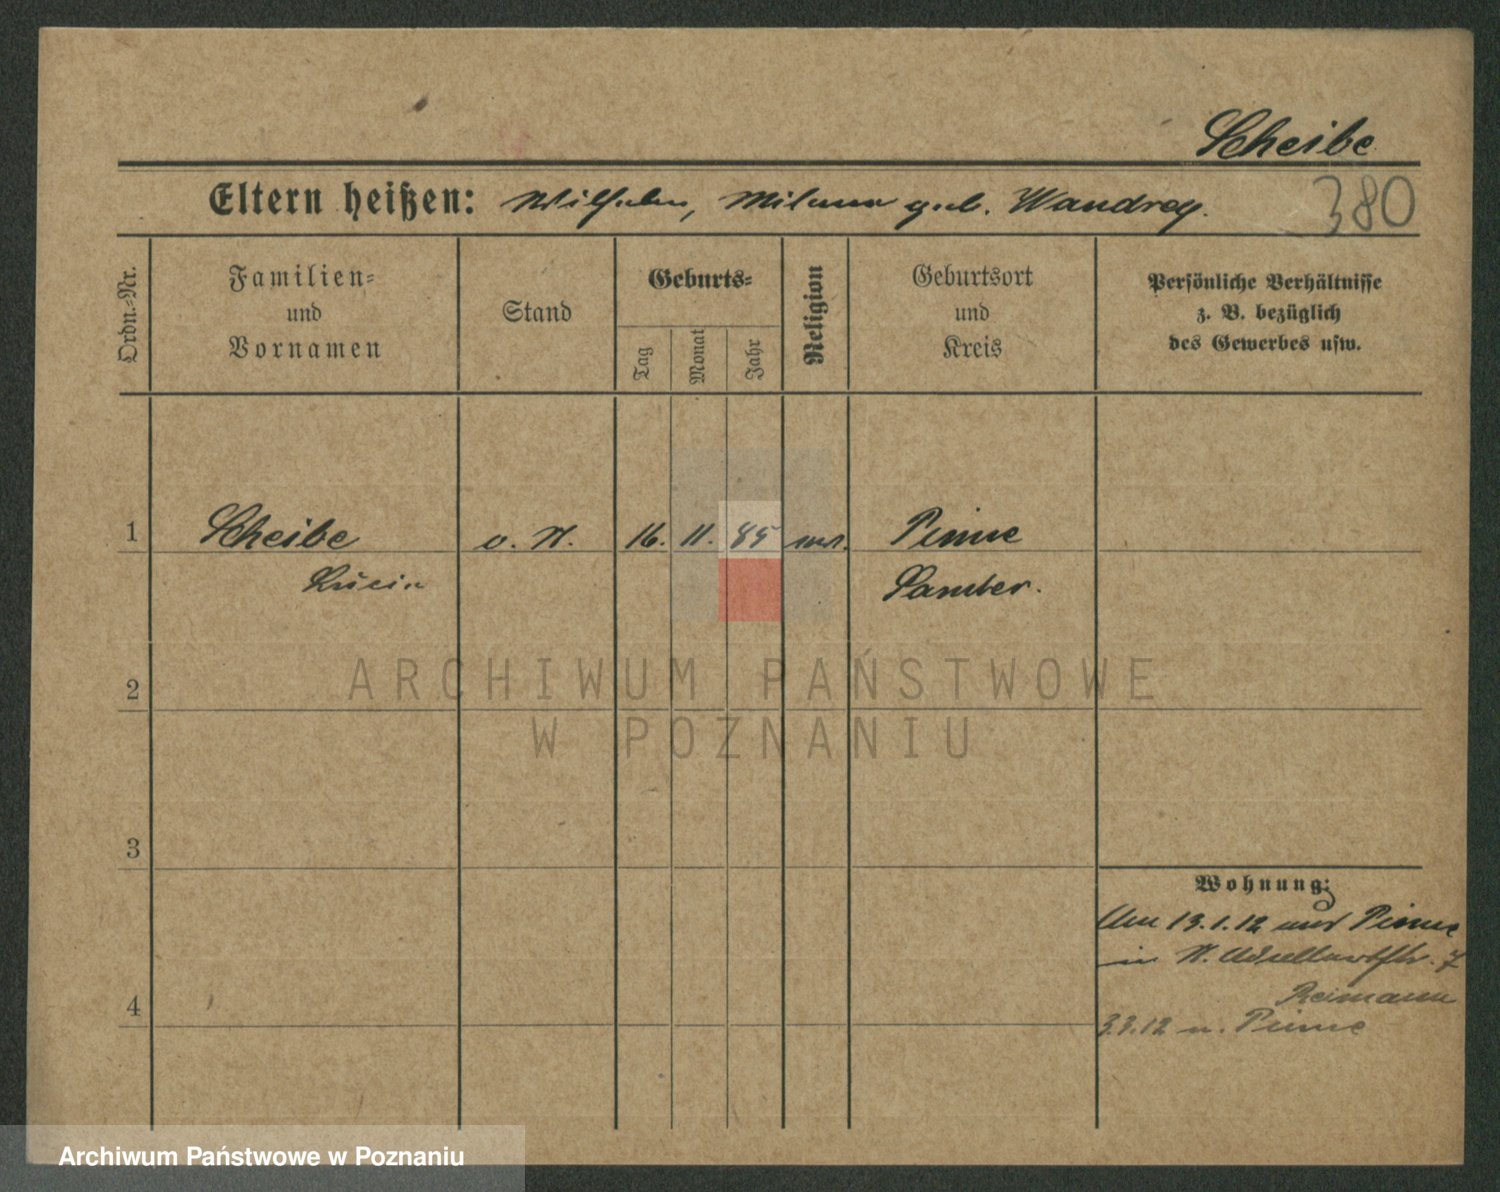 Scheibe
Eltern heißen: Wilhelm, geb. Wandrey.
380
Ordn.-Nr.
Familien-
und
Vornamen
Stand
Geburts-
Tag
Monat
Jahr
Religion
Geburtsort
und
Kreis
Persönliche Verhältnisse
z. B. bezüglich
des Gewerbes usw.
1 Scheibe o. 16. 11. 85 Pinne
Samter.
2
ARCHIWUM PAŃSTWOWE
W POZNANIU
3
Wohnung:
13.1.12 Pinne
in 7
Reimann
4
12 n. Pinne
Archiwum Państwowe w Poznaniu